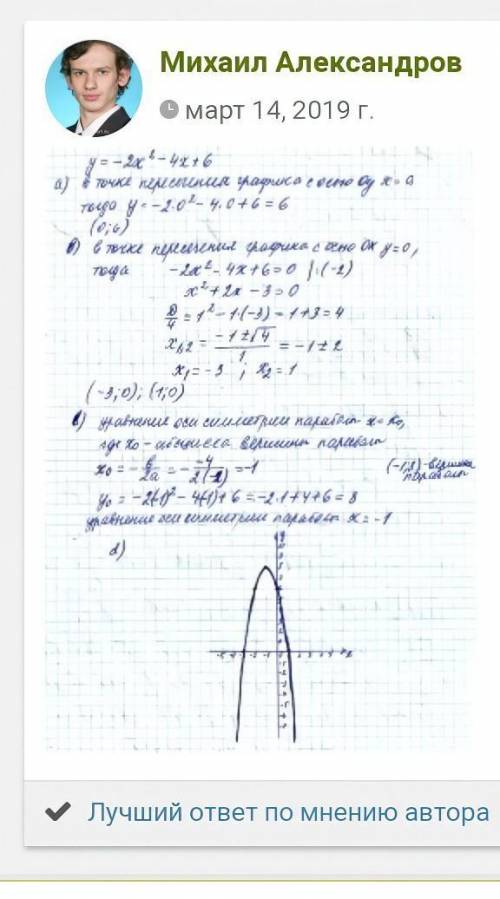 Михаил Александров
март 14, 2019 г.
y = -2x² - 4x + 6
а) в точке пересечения графика с осью Oy x = 0
тогда y = -2·0² - 4·0 + 6 = 6
(0; 6)
в) в точке пересечения графика с осью Ox y = 0,
тогда -2x² - 4x + 6 = 0 | :(-2)
x² + 2x - 3 = 0
D/4 = 1² - 1·(-3) = 1 + 3 = 4
x₁,₂ = (-1 ± √4)/1 = -1 ± 2
x₁ = -3 ; x₂ = 1
(-3; 0); (1; 0)
в) уравнение оси симметрии параболы x = x₀,
где x₀ - абсцисса вершины параболы
x₀ = -b/2a = - -4/2(-2) = -1 (-1; 8) - вершина параболы
y₀ = -2(-1)² - 4(-1) + 6 = -2·1 + 4 + 6 = 8
уравнение оси симметрии параболы x = -1
d)
Лучший ответ по мнению автора